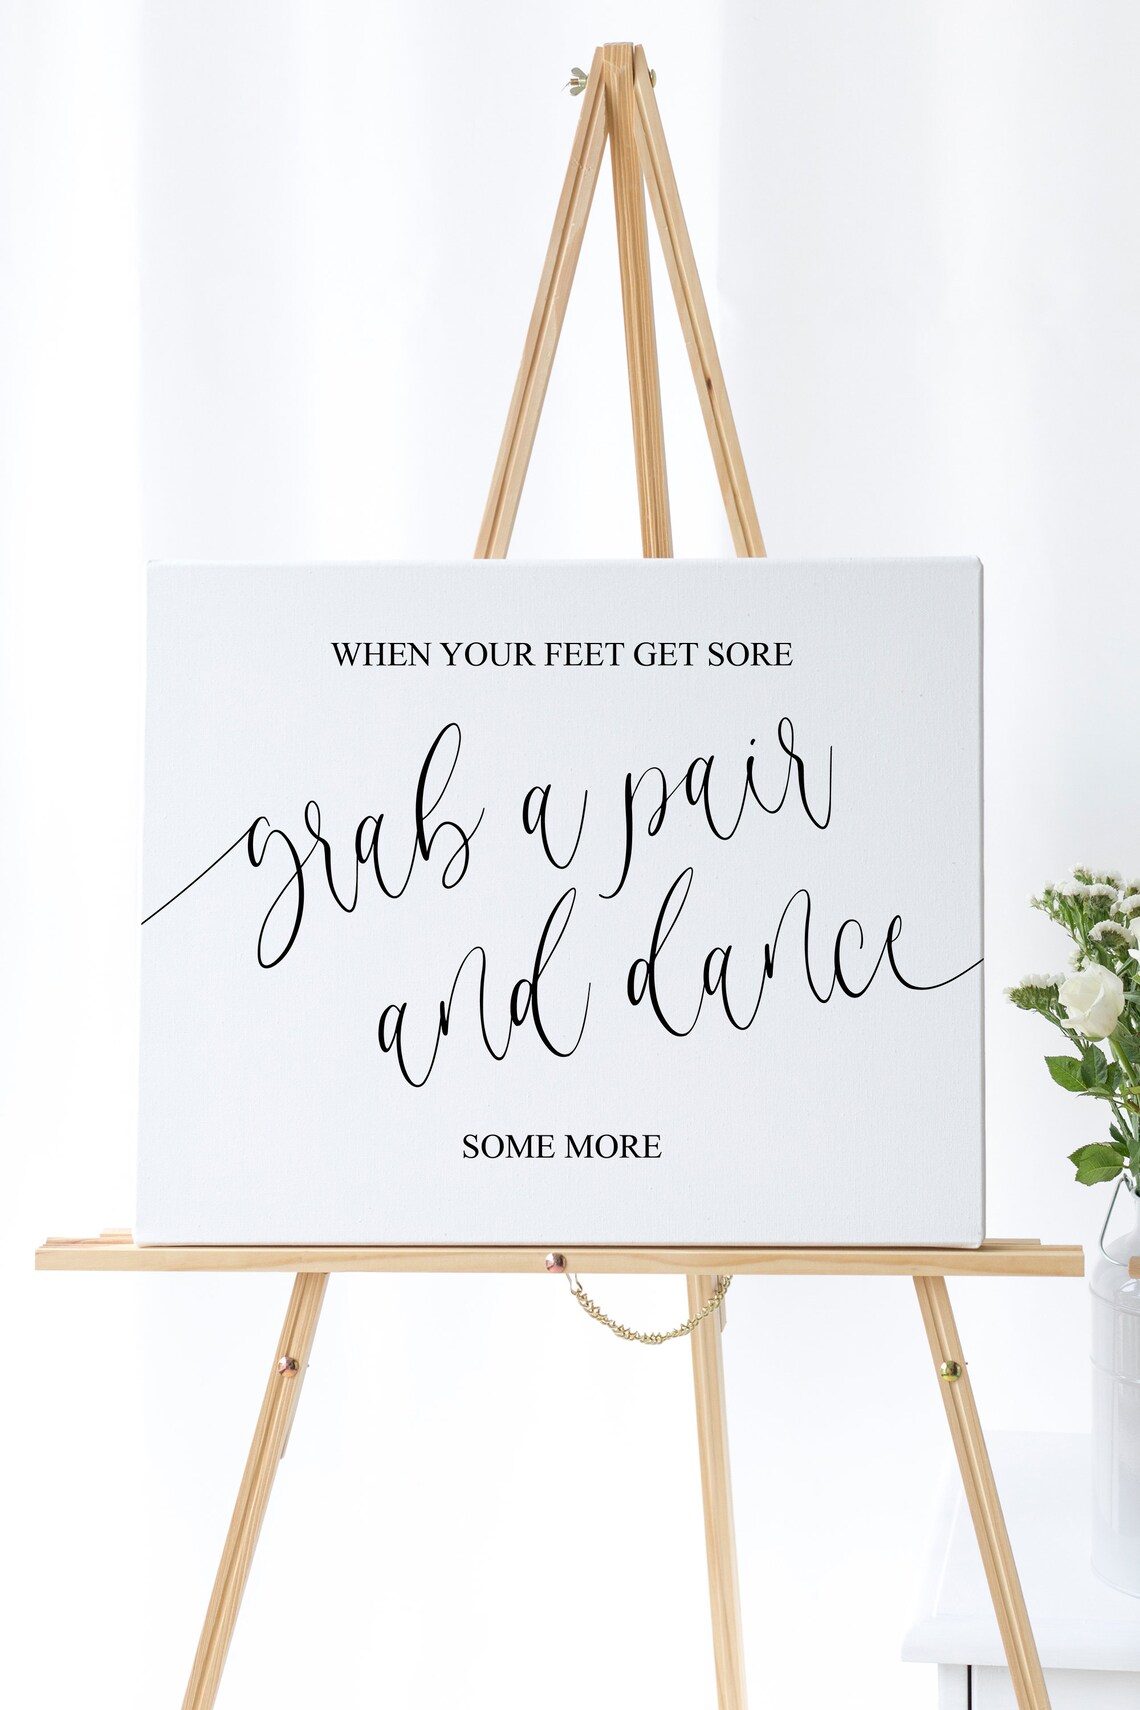 WHEN YOUR FEET GET SORE
grab a pair
and dance
SOME MORE